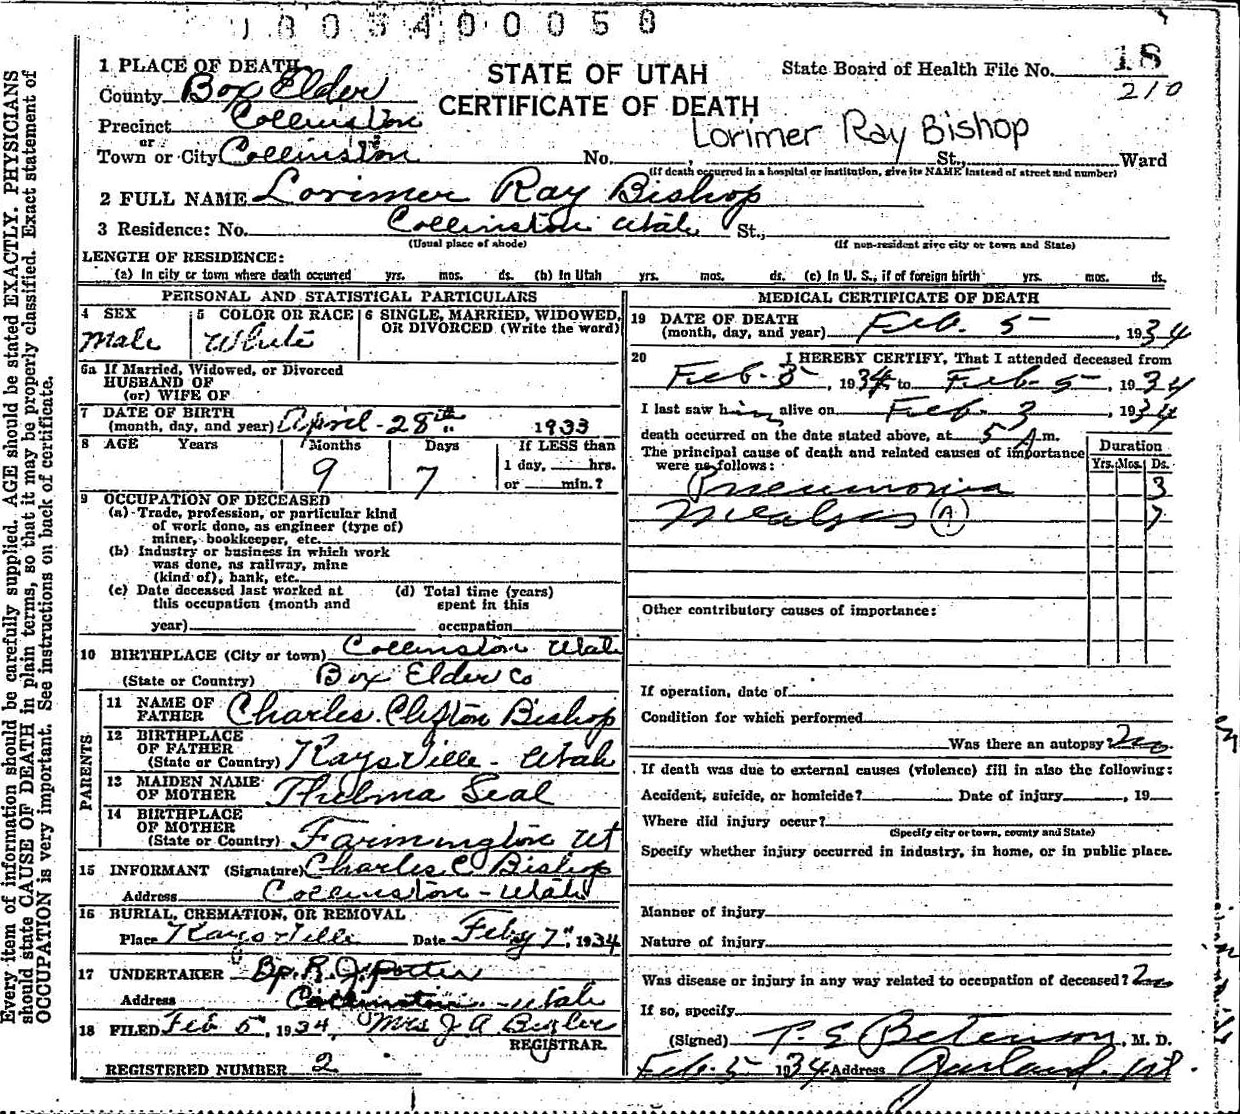 1 8 0 3 4 0 0 0 5 8
18
210
1 PLACE OF DEATH
STATE OF UTAH
CERTIFICATE OF DEATH
State Board of Health File No.
County Box Elder
Precinct Collinston
or
Lorimer Ray Bishop
Town or City Collinston No. , St., Ward
(If death occurred in a hospital or institution, give its NAME instead of street and number)
2 FULL NAME Lorimer Ray Bishop
3 Residence: No. Collinston Utah St.,
(Usual place of abode) (If non-resident give city or town and State)
LENGTH OF RESIDENCE:
(a) In city or town where death occurred yrs. mos. ds. (b) In Utah yrs. mos. ds. (c) In U. S., if of foreign birth yrs. mos. ds.
PERSONAL AND STATISTICAL PARTICULARS
4 SEX Male
5 COLOR OR RACE White
6 SINGLE, MARRIED, WIDOWED, OR DIVORCED (Write the word)
6a If Married, Widowed, or Divorced
HUSBAND OF
(or) WIFE OF
7 DATE OF BIRTH
(month, day, and year) April - 28th 1933
8 AGE Years Months Days If LESS than
9 7 1 day, hrs.
or min.?
9 OCCUPATION OF DECEASED
(a) Trade, profession, or particular kind
of work done, as engineer (type of)
miner, bookkeeper, etc.
(b) Industry or business in which work
was done, as railway, mine
(kind of), bank, etc.
(c) Date deceased last worked at
this occupation (month and
year)
(d) Total time (years)
spent in this
occupation
10 BIRTHPLACE (City or town) Collinston Utah
(State or Country) Box Elder Co
PARENTS
11 NAME OF
FATHER Charles Clifton Bishop
12 BIRTHPLACE
OF FATHER
(State or Country) Kaysville - Utah
13 MAIDEN NAME
OF MOTHER Thelma Seal
14 BIRTHPLACE
OF MOTHER
(State or Country) Farmington Ut
15 INFORMANT (Signature) Charles C Bishop
Address Collinston - Utah
16 BURIAL, CREMATION, OR REMOVAL
Place Kaysville Date Feby 7" 1934
17 UNDERTAKER Bp. R. J. Potter
Address Collinston - Utah
18 FILED Feb 5", 1934, Mrs J A
REGISTRAR.
REGISTERED NUMBER 2
MEDICAL CERTIFICATE OF DEATH
19 DATE OF DEATH
(month, day, and year) Feb. 5, 1934
20 I HEREBY CERTIFY, That I attended deceased from
Feb. 3, 1934, to Feb. 5, 1934
I last saw him alive on Feb. 3, 1934
death occurred on the date stated above, at 5 A m.
The principal cause of death and related causes of importance
were as follows:
Duration
Yrs. Mos. Ds.
Pneumonia 3
Measles (A) 7
Other contributory causes of importance:
If operation, date of
Condition for which performed
Was there an autopsy? No
If death was due to external causes (violence) fill in also the following:
Accident, suicide, or homicide? Date of injury , 19
Where did injury occur?
(Specify city or town, county and State)
Specify whether injury occurred in industry, in home, or in public place.
Manner of injury
Nature of injury
Was disease or injury in any way related to occupation of deceased? No
If so, specify
(Signed) , M. D.
Feb. 5 1934 Address Garland, Ut.
Every item of information should be carefully supplied. AGE should be stated EXACTLY. PHYSICIANS
should state CAUSE OF DEATH in plain terms, so that it may be properly classified. Exact statement of
OCCUPATION is very important. See instructions on back of certificate.